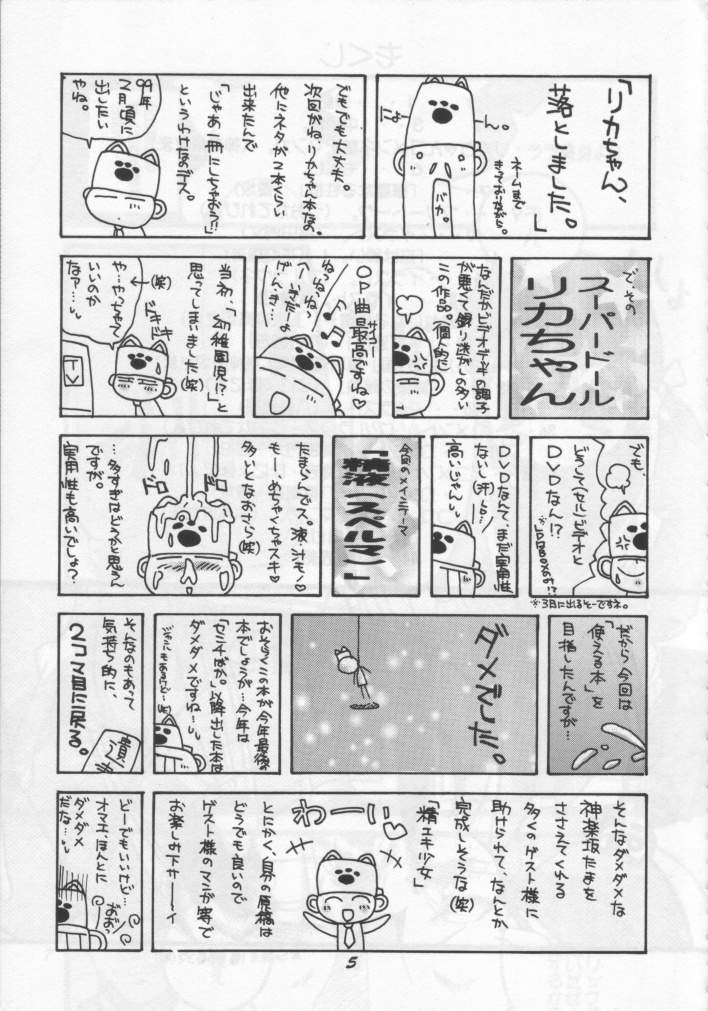 「リカちゃん、
落としました。」
ん。
ネームまで
バカ。
でもでも大丈夫。
次回がね、リカちゃん本なの。
他にネタが2本くらい
出来たんで
「じゃあ一冊にしちゃおう!!」
というわけなのデス。
99年
2月頃に
出したい
やね。
でその
スーパードール
リカちゃん
なんだかビデオデッキの調子
が悪くて録り逃がしの多い
この作品。個人的に
OP曲最高ですね♡
サイコー
ねっねっねっ
げんき…
当初、「幼稚園児!?」と
思ってしまいました(笑)
(笑)
や…やっちゃって
いいのか
なァ…
ドキドキ
TV
でも、
どうして(セル)ビデオと
DVDなん!?
※3月に出るそーですネ。
DVDなんて、まだ実用性
ないし(汗)
高いじゃん。
今回のメインテーマ
「精液(スペルマ)」
たまらんデス。液・汁モノ♡
もー、めちゃくちゃスキ♡
多いとなおさら(笑)
ドロドロ
…多すぎはどうかと思うん
ですが。
実用性も高いでしょ?
だから今回は
「使える本」を
目指したんですが…
ダメでした。
おそらくこの本が今年最後の
本でしょうが…今年は
以降出した本は
ダメダメですね…
そんなのもあって
気持ち的に、
2コマ目に戻る。
そんなダメダメな
神楽坂たまを
ささえてくれる
多くのゲスト様に
助けられて、なんとか
完成しそうな(笑)
「精エキ少女」
わーい
とにかく、自分の原稿は
どうでも良いので
ゲスト様のマンガ等で
お楽しみ下サーーイ
どーでもいいけど…
オマエ、ほんとに
ダメダメ
だな…
おおっ
5